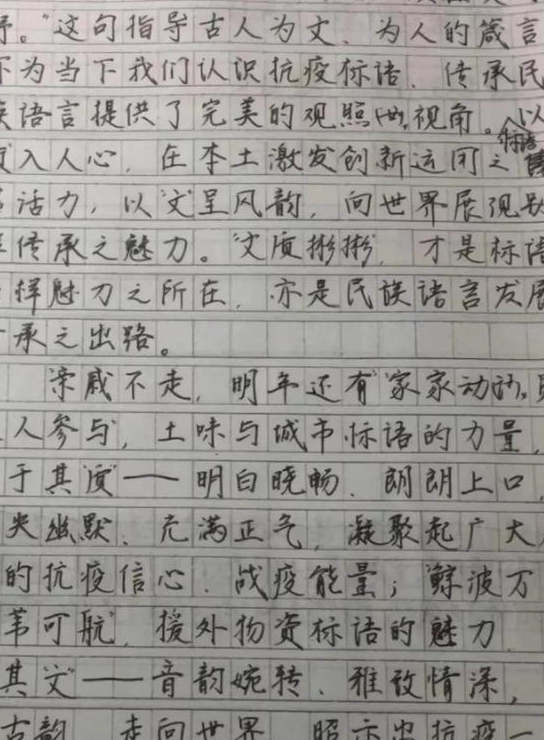 。”这句指导古人为文、为人的箴言
为当下我们认识抗疫标语、传承民
族语言提供了完美的观照视角。以
入人心,在本土激发创新运用之
活力,以“文”呈风韵,向世界展现
传承之魅力。“文质彬彬”,才是标语
样魅力之所在,亦是民族语言发展
承之出路。
“亲戚不走,明年还有”“家家动访,
人参与”,土味与城市标语的力量,
于其“质”——明白晓畅、朗朗上口,
幽默、充满正气,凝聚起广大
的抗疫信心、战疫能量;“鲸波万
苇可航”,援外物资标语的魅力
其“文”——音韵婉转、雅致情深,
古韵,走向世界,昭示出抗疫一